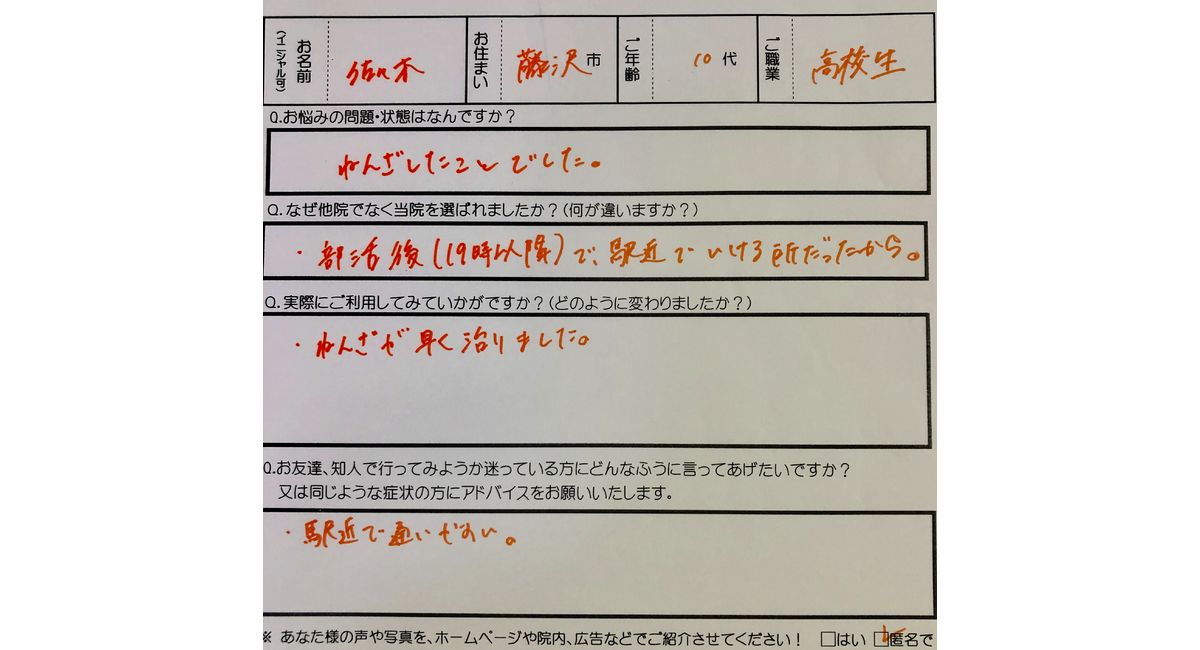 お名前 (イニシャル可) 佐々木 お住まい 藤沢市 ご年齢 10代 ご職業 高校生
Q.お悩みの問題・状態はなんですか?
ねんざしたことでした。
Q.なぜ他院でなく当院を選ばれましたか?(何が違いますか?)
・部活後(19時以降)で、駅近でいける所だったから。
Q.実際にご利用してみていかがですか?(どのように変わりましたか?)
・ねんざが早く治りました。
Q.お友達、知人で行ってみようか迷っている方にどんなふうに言ってあげたいですか?
又は同じような症状の方にアドバイスをお願いいたします。
・駅近で通いやすい。
※ あなた様の声や写真を、ホームページや院内、広告などでご紹介させてください! □はい □匿名で